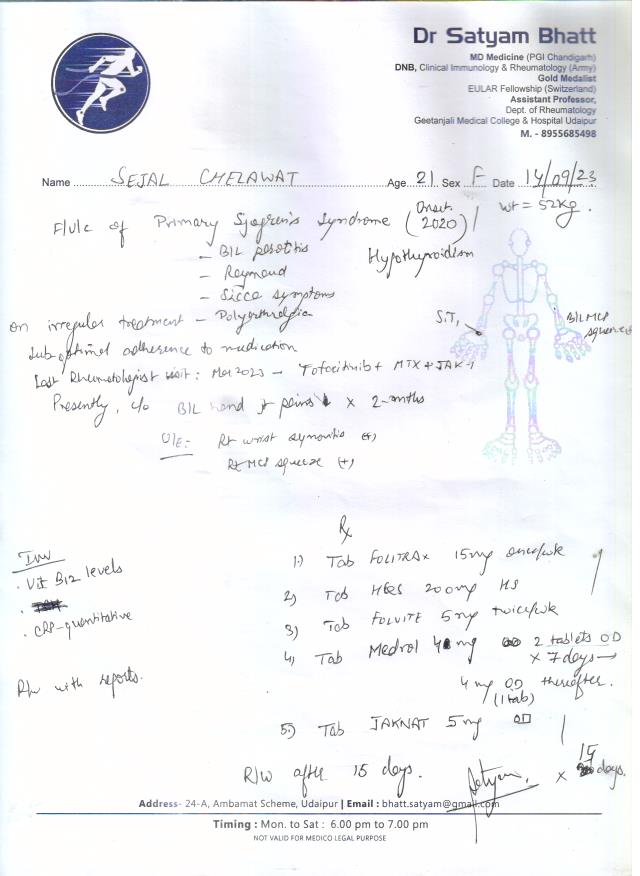 Dr Satyam Bhatt
MD Medicine (PGI Chandigarh)
DNB, Clinical Immunology & Rheumatology (Army)
Gold Medalist
EULAR Fellowship (Switzerland)
Assistant Professor,
Dept. of Rheumatology
Geetanjali Medical College & Hospital Udaipur
M. - 8955685498
Name SEJAL CHELAWAT Age 21 Sex F Date 14/09/23
F/U/c of Primary Sjogren's Syndrome (Onset 2020) / Wt = 52kg.
- B/L parotitis Hypothyroidism
- Raynaud
- Sicca symptoms
On irregular treatment - Polyarthralgia
Sub-optimal adherence to medication
S.T,
B/L MCP squeeze
Last Rheumatologist visit: Mar 2023 - Tofacitinib + MTX + JAK-1
Presently, c/o B/L hand jt pains x 2-months
O/E: Rt wrist synovitis (+)
Rt MCP squeeze (+)
Inv
. Vit B12 levels
. CRP-quantitative
R/w with reports.
Rx
1.) Tab FOLITRAX 15mg once/wk
2) Tab HCQS 200mg HS
3) Tab FOLVITE 5mg twice/wk
4) Tab Medrol 4 mg 2 tablets OD
x 7 days →
4 mg OD thereafter.
(1 tab)
5.) Tab JAKNAT 5mg OD
R/w after 15 days. Satyam x 15 days.
Address- 24-A, Ambamat Scheme, Udaipur | Email : bhatt.satyam@gmail.com
Timing : Mon. to Sat : 6.00 pm to 7.00 pm
NOT VALID FOR MEDICO LEGAL PURPOSE